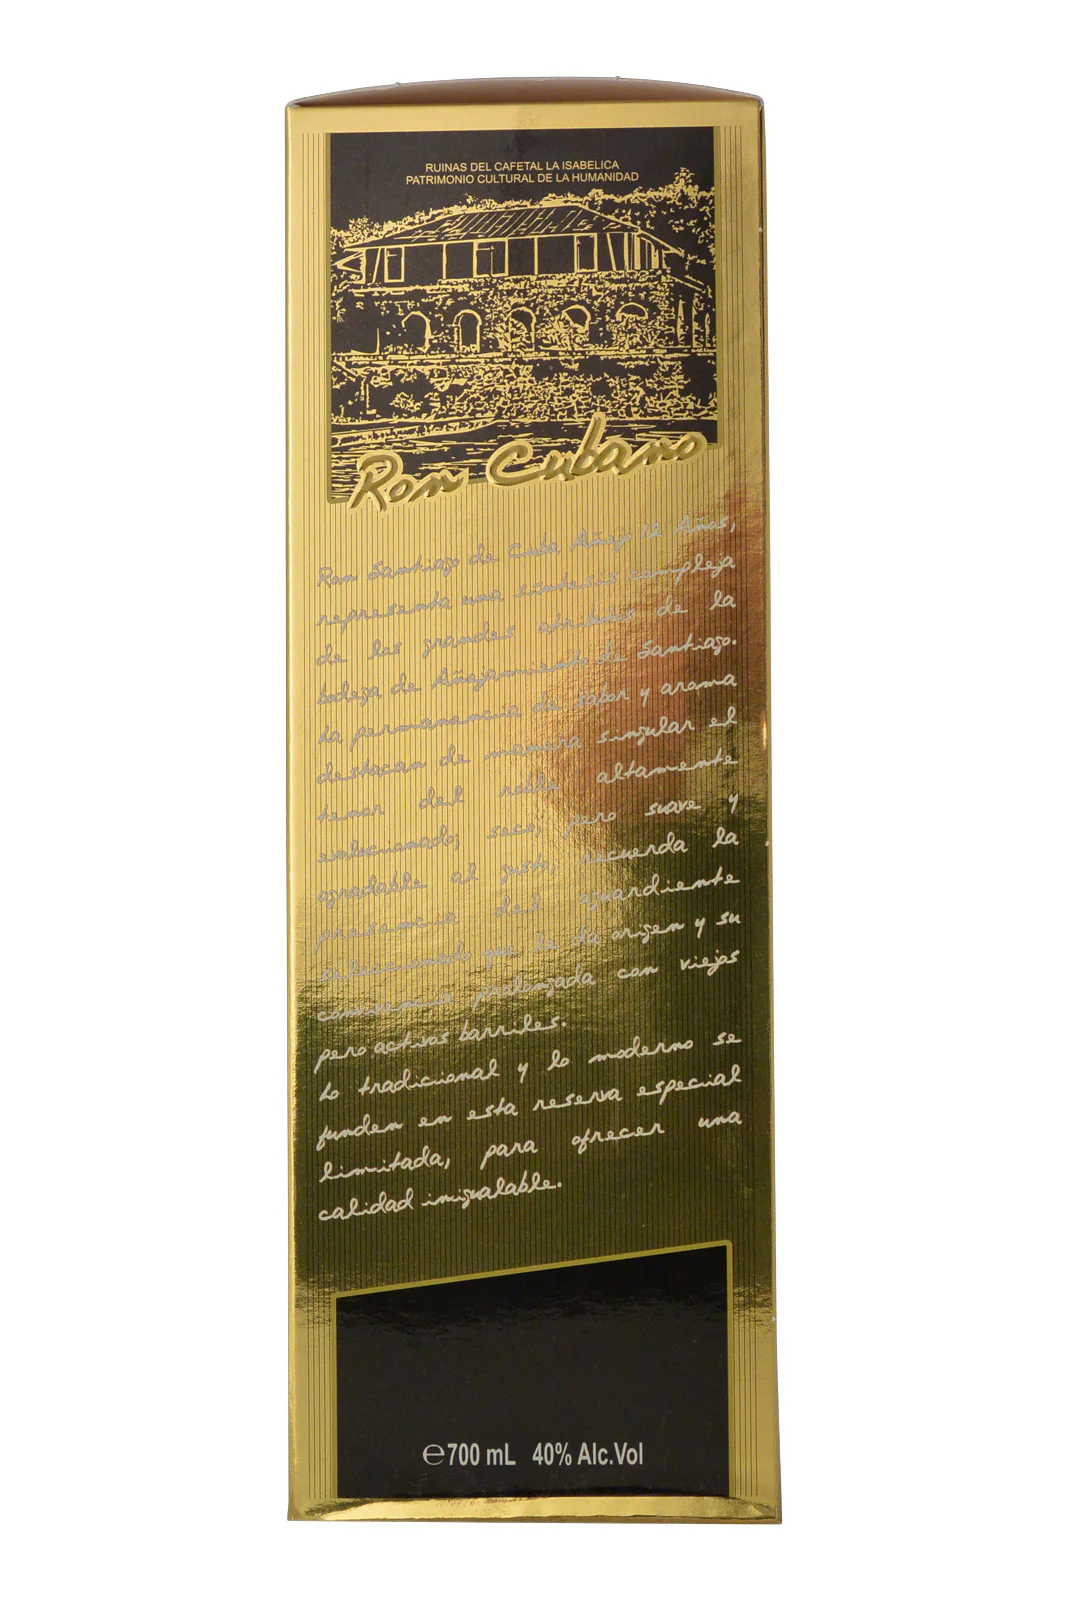 RUINAS DEL CAFETAL LA ISABELICA
PATRIMONIO CULTURAL DE LA HUMANIDAD
Ron Cubano
Ron Santiago de Cuba Añejo 12 Años,
representa una síntesis compleja
de las grandes atributos de la
bodega de Añejamiento de Santiago.
La permanencia de sabor y aroma
destacan de manera singular el
tenor del roble altamente
evolucionado; seco, pero suave y
agradable al gusto, recuerda la
presencia del aguardiente
seleccionado que le da origen y su
convivencia prolongada con viejos
pero activos barriles.
Lo tradicional y lo moderno se
funden en esta reserva especial
limitada, para ofrecer una
calidad inigualable.
℮700 mL 40% Alc.Vol